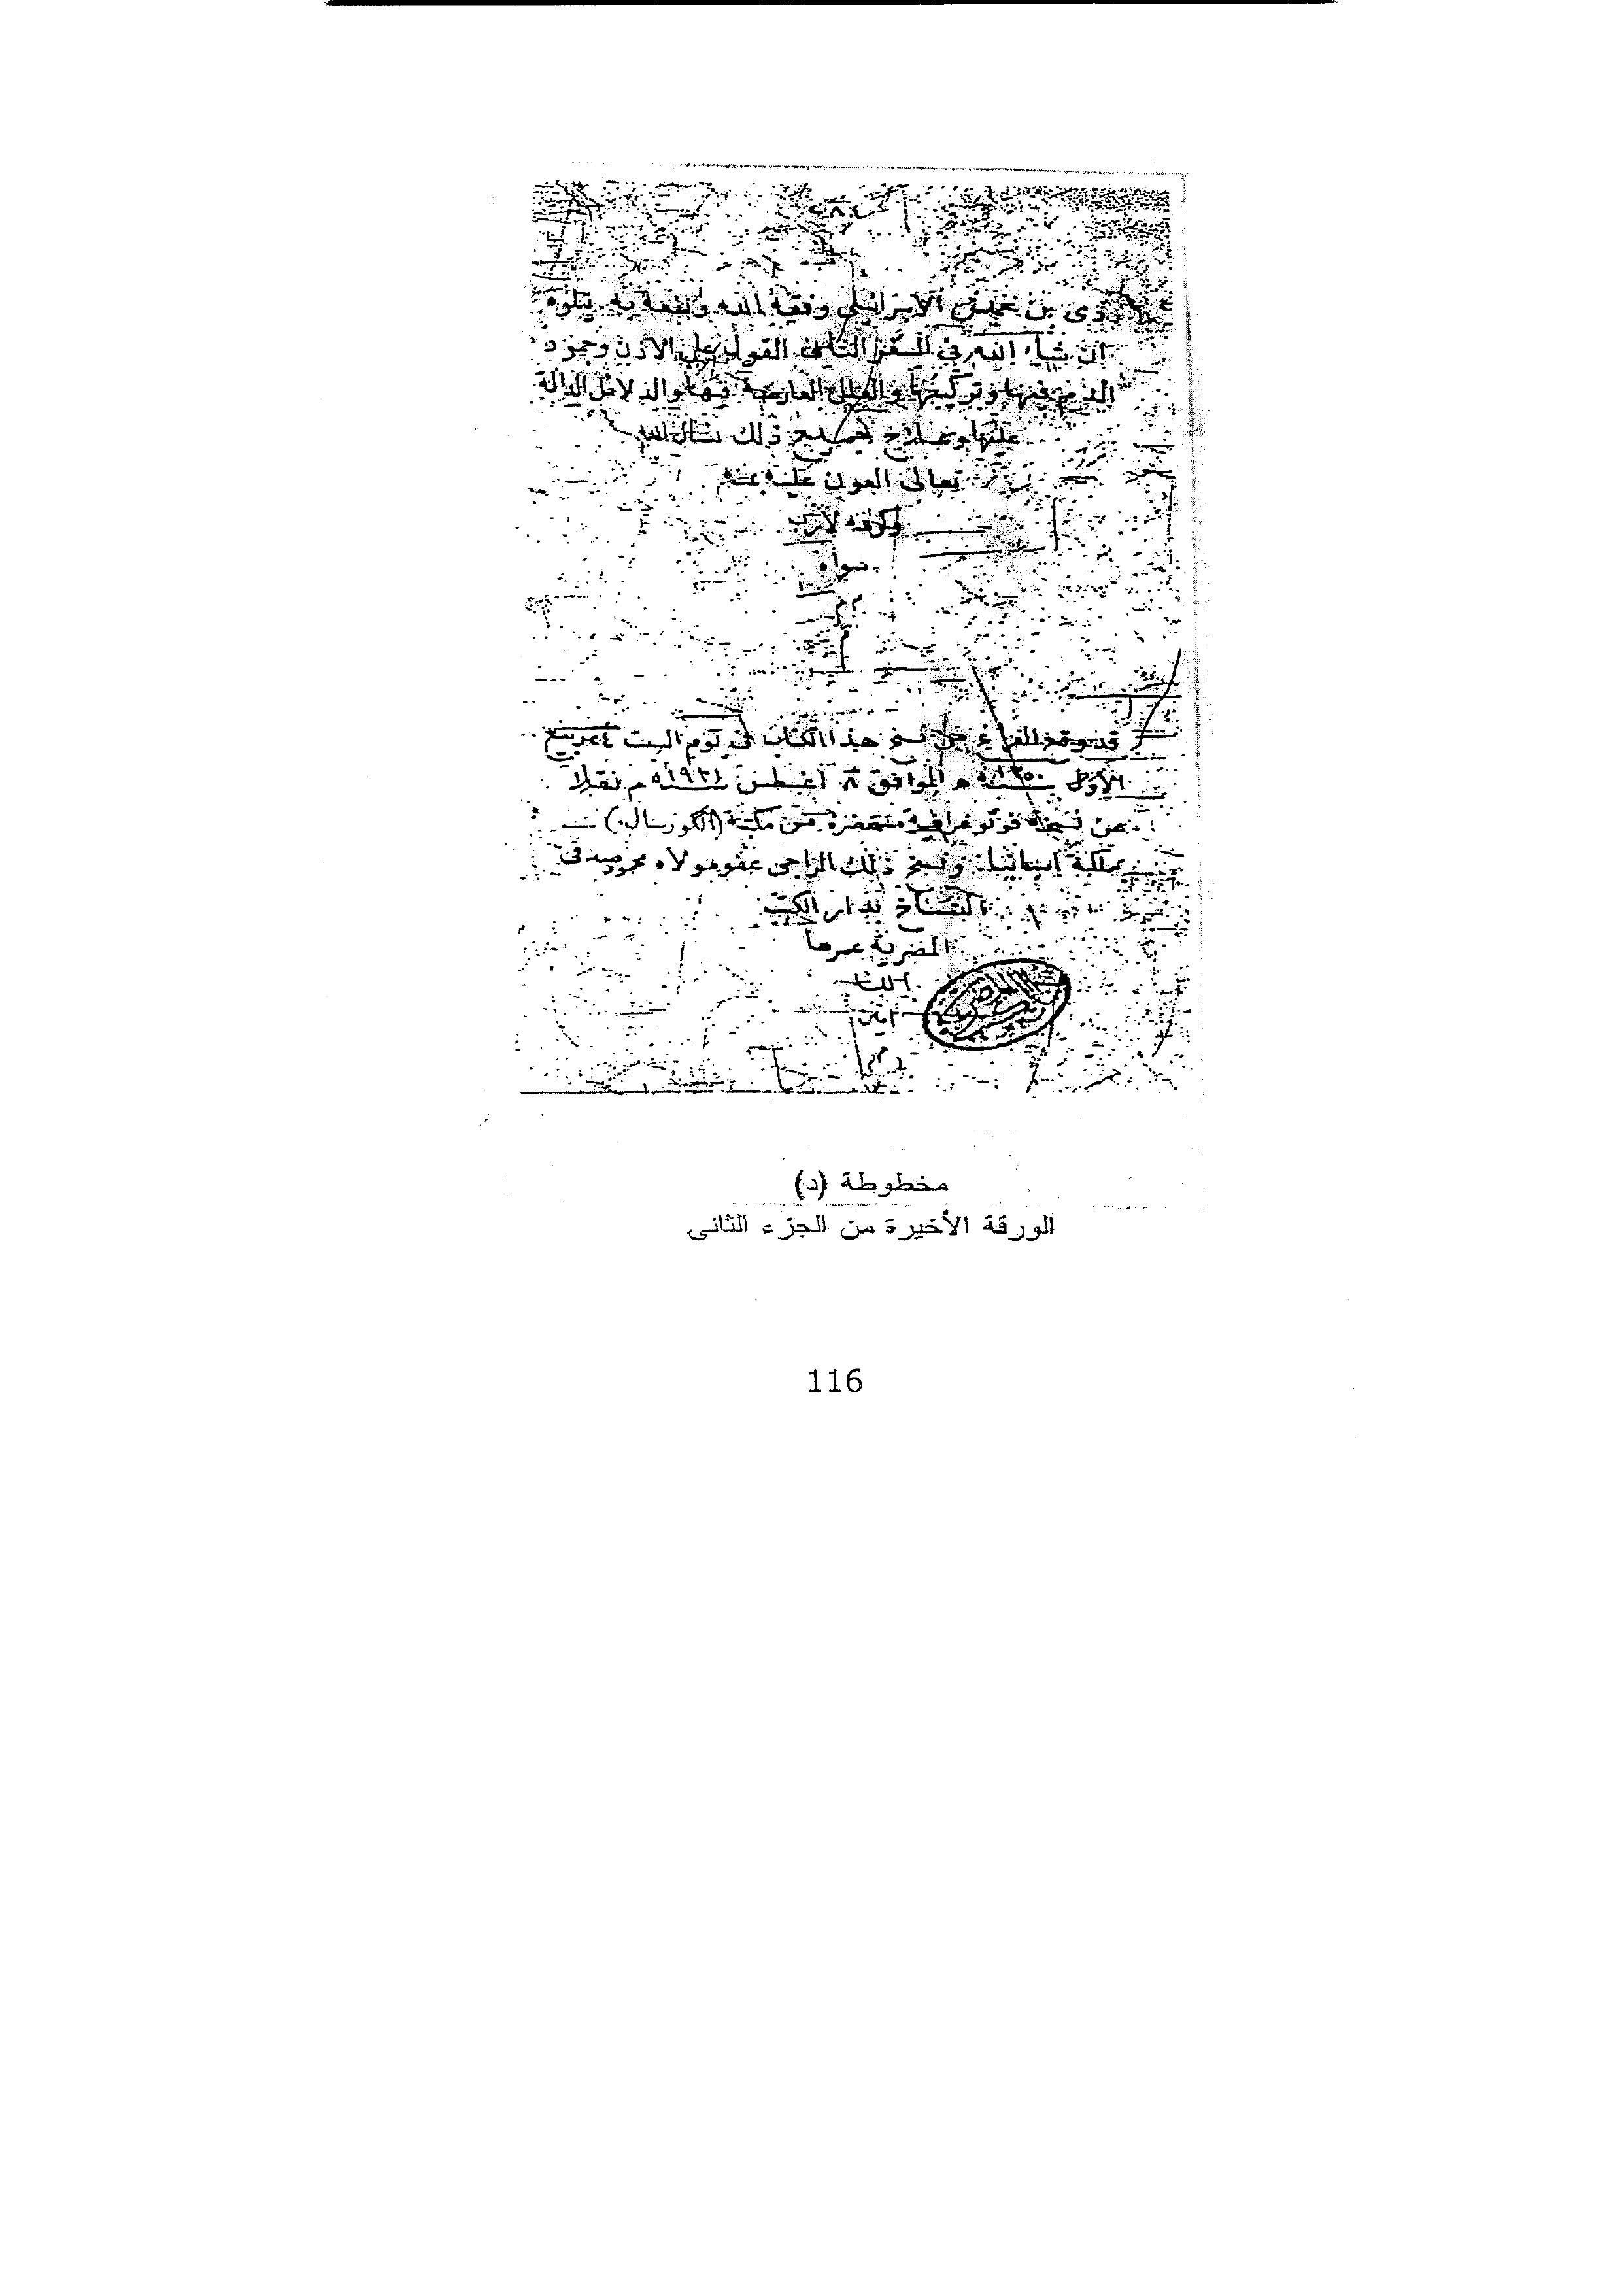 بن الاسرائيلى وفقه الله ونفعه به يتلوه
ان شاء الله فى السفر الثانى القول على الاذن وجمود
الدم فيها وتركيبها والعلل العارضة فيها والدلائل الدالة
عليها وعلاج جميع ذلك نسأل الله
تعالى العون عليه بمنه
وكرمه لارب
سواه
قد وقع الفراغ من نسخ هذا الكتاب فى يوم السبت ربيع
الأول سنة ١٣٥٠ ه الموافق ٨ أغسطس سنة ١٩٣١ م نقلا
عن نسخة فوتوغرافية من مكتبة (الكوريال)
بمملكة اسبانيا. ونسخ ذلك الراجى عفو مولاه محمود صدقى
النساخ بدار الكتب
المصرية عمرها
الله
امين
مخطوطة (د)
الورقة الأخيرة من الجزء الثانى
116